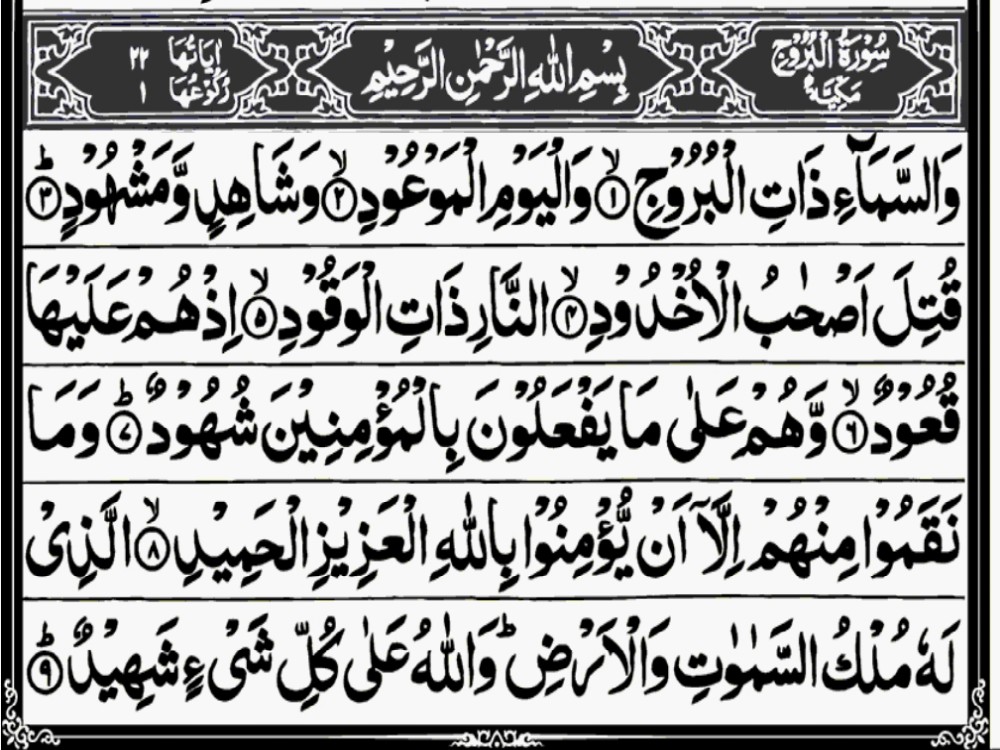 سُوْرَةُ الْبُرُوْجِ مَكِّيَّةٌ بِسْمِ اللهِ الرَّحْمٰنِ الرَّحِيْمِ اٰيَاتُهَا ٢٢ رُكُوْعُهَا ١
وَالسَّمَآءِ ذَاتِ الْبُرُوْجِۙ‏﴿۱﴾ وَالْيَوْمِ الْمَوْعُوْدِۙ‏﴿۲﴾ وَشَاهِدٍ وَّمَشْهُوْدٍؕ‏﴿۳﴾
قُتِلَ اَصْحٰبُ الْاُخْدُوْدِۙ‏﴿۴﴾ النَّارِ ذَاتِ الْوَقُوْدِۙ‏﴿۵﴾ اِذْ هُمْ عَلَيْهَا
قُعُوْدٌۙ‏﴿۶﴾ وَّهُمْ عَلٰى مَا يَفْعَلُوْنَ بِالْمُؤْمِنِيْنَ شُهُوْدٌؕ‏﴿۷﴾ وَمَا
نَقَمُوْا مِنْهُمْ اِلَّاۤ اَنْ يُّؤْمِنُوْا بِاللهِ الْعَزِيْزِ الْحَمِيْدِۙ‏﴿۸﴾ الَّذِىْ
لَهٗ مُلْكُ السَّمٰوٰتِ وَالْاَرْضِؕ وَاللهُ عَلٰى كُلِّ شَىْءٍ شَهِيْدٌؕ‏﴿۹﴾